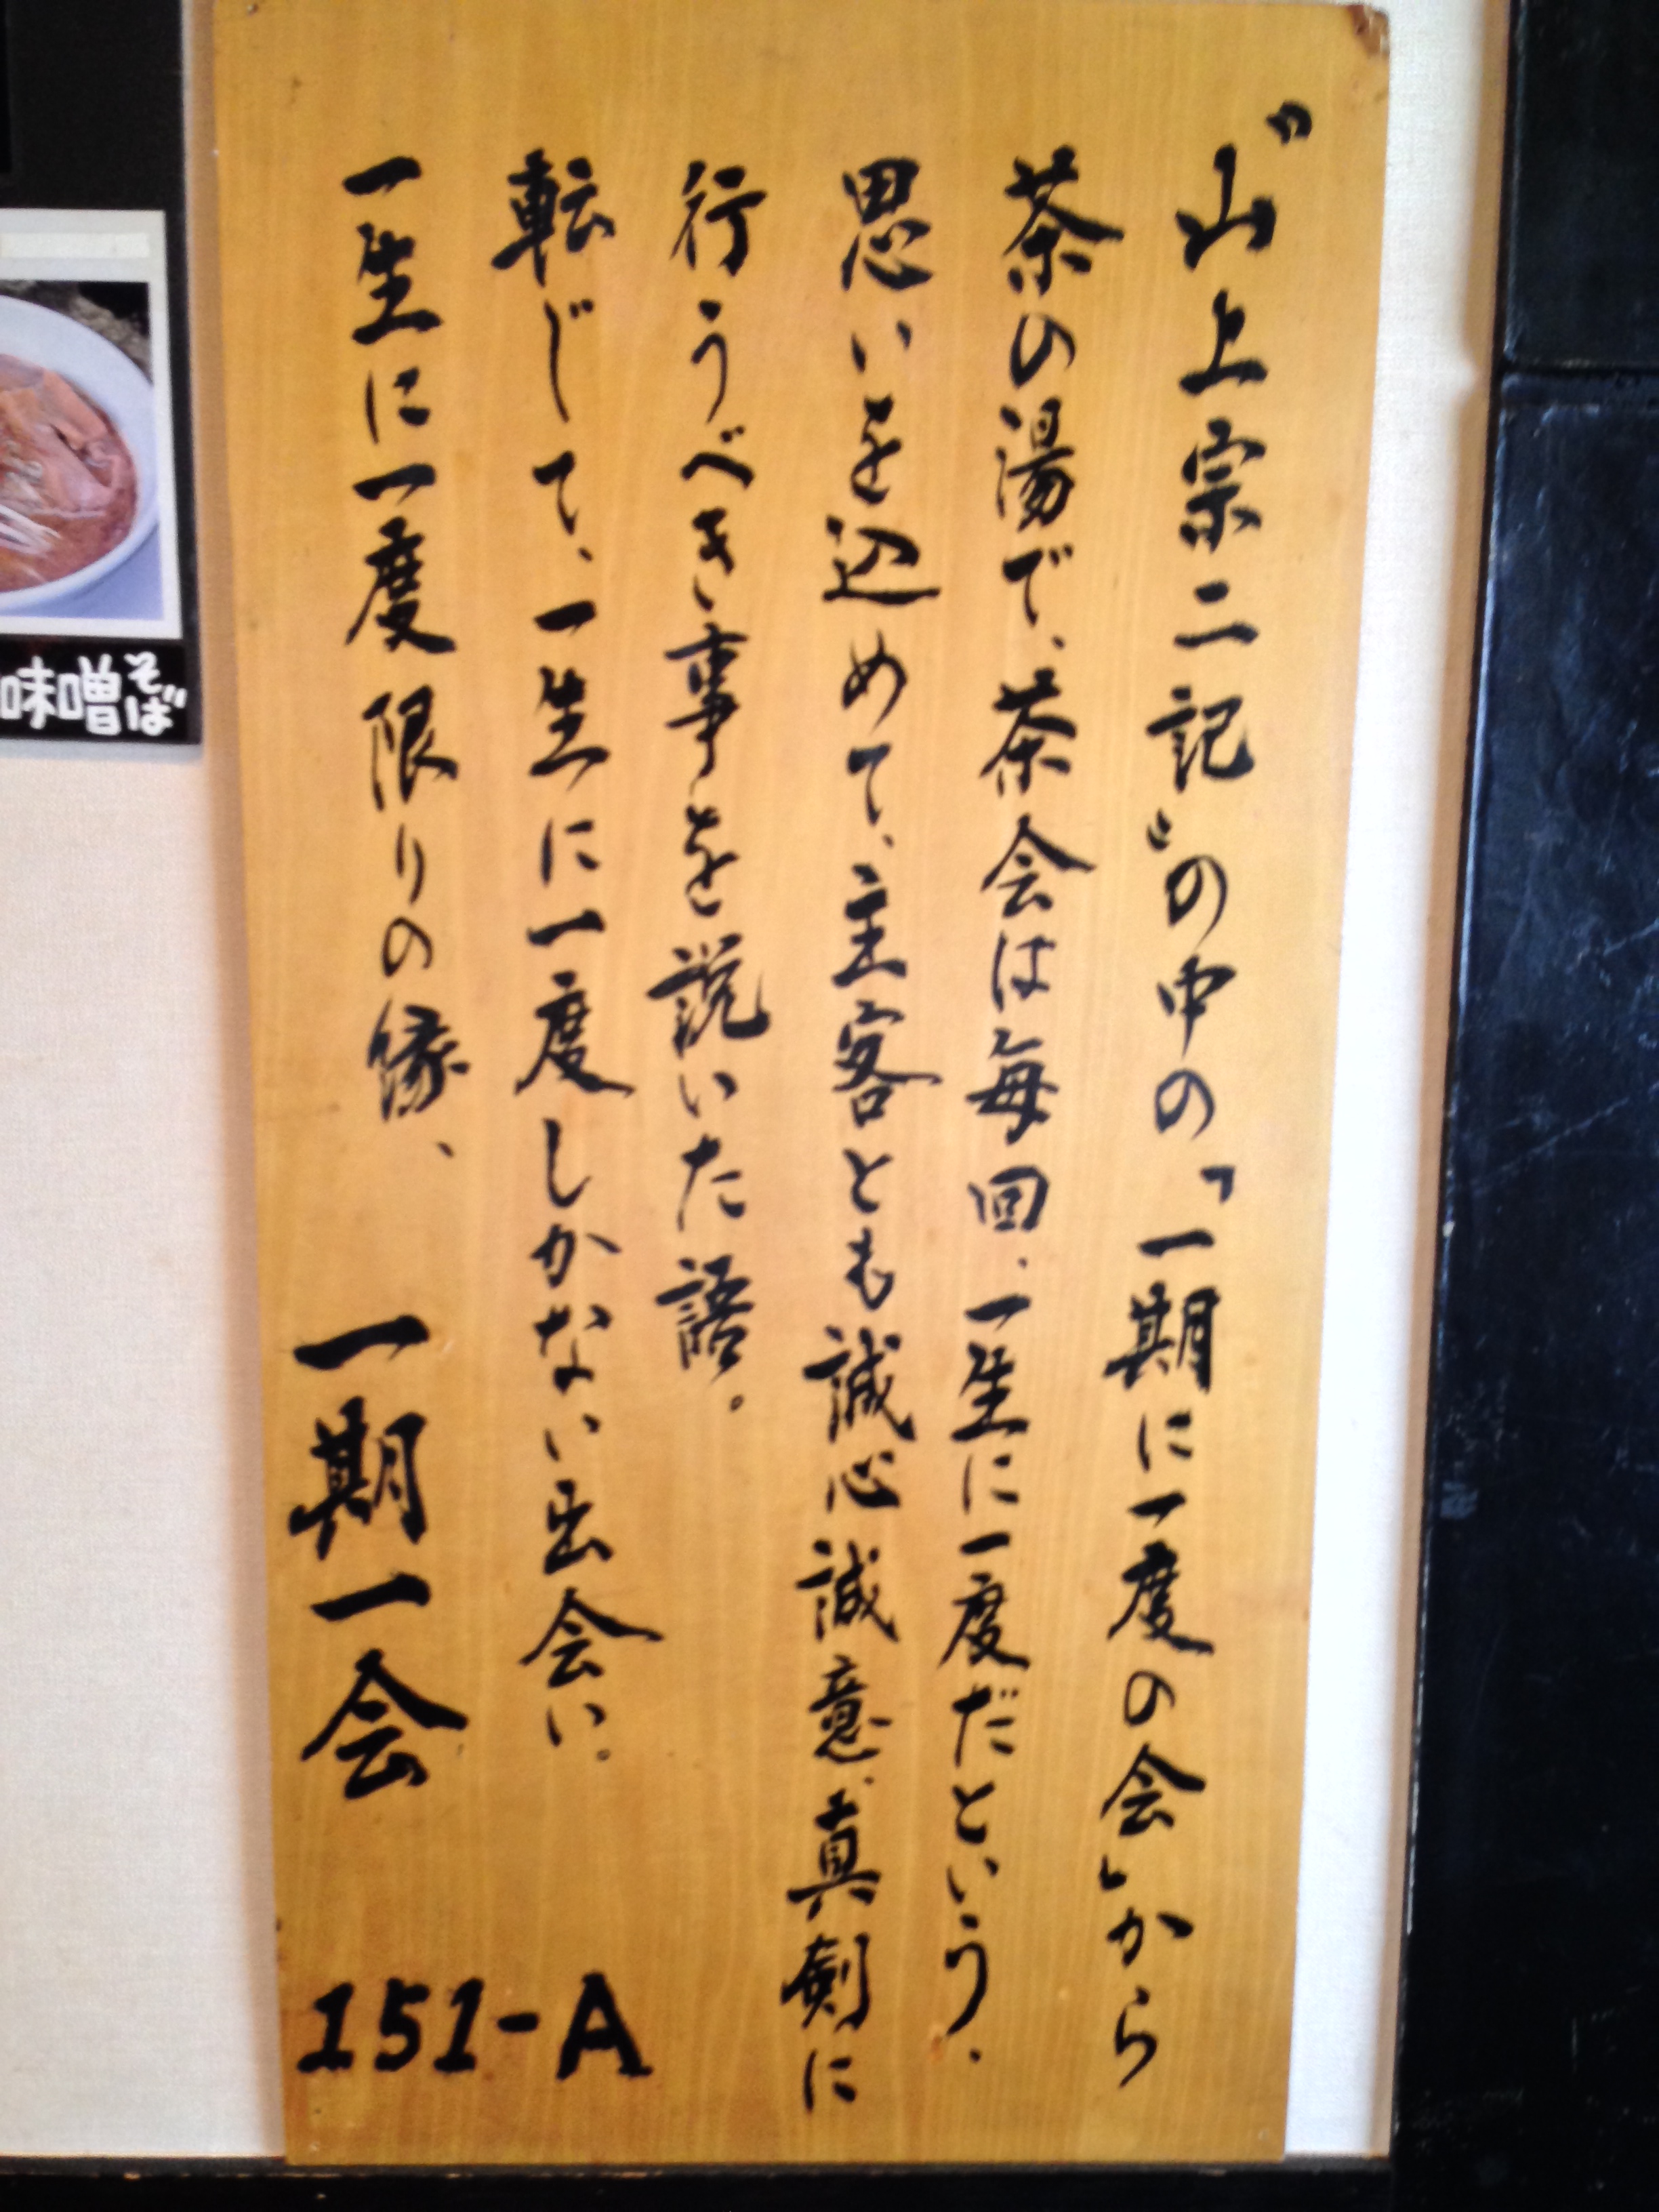 〝山上宗二記〟の中の「一期に一度の会」から
茶の湯で、茶会は毎回、一生に一度だという、
思いを込めて、主客とも誠心誠意、真剣に
行うべき事を説いた語。
転じて、一生に一度しかない出会い。
一生に一度限りの縁、
一期一会
151-A
味噌そば